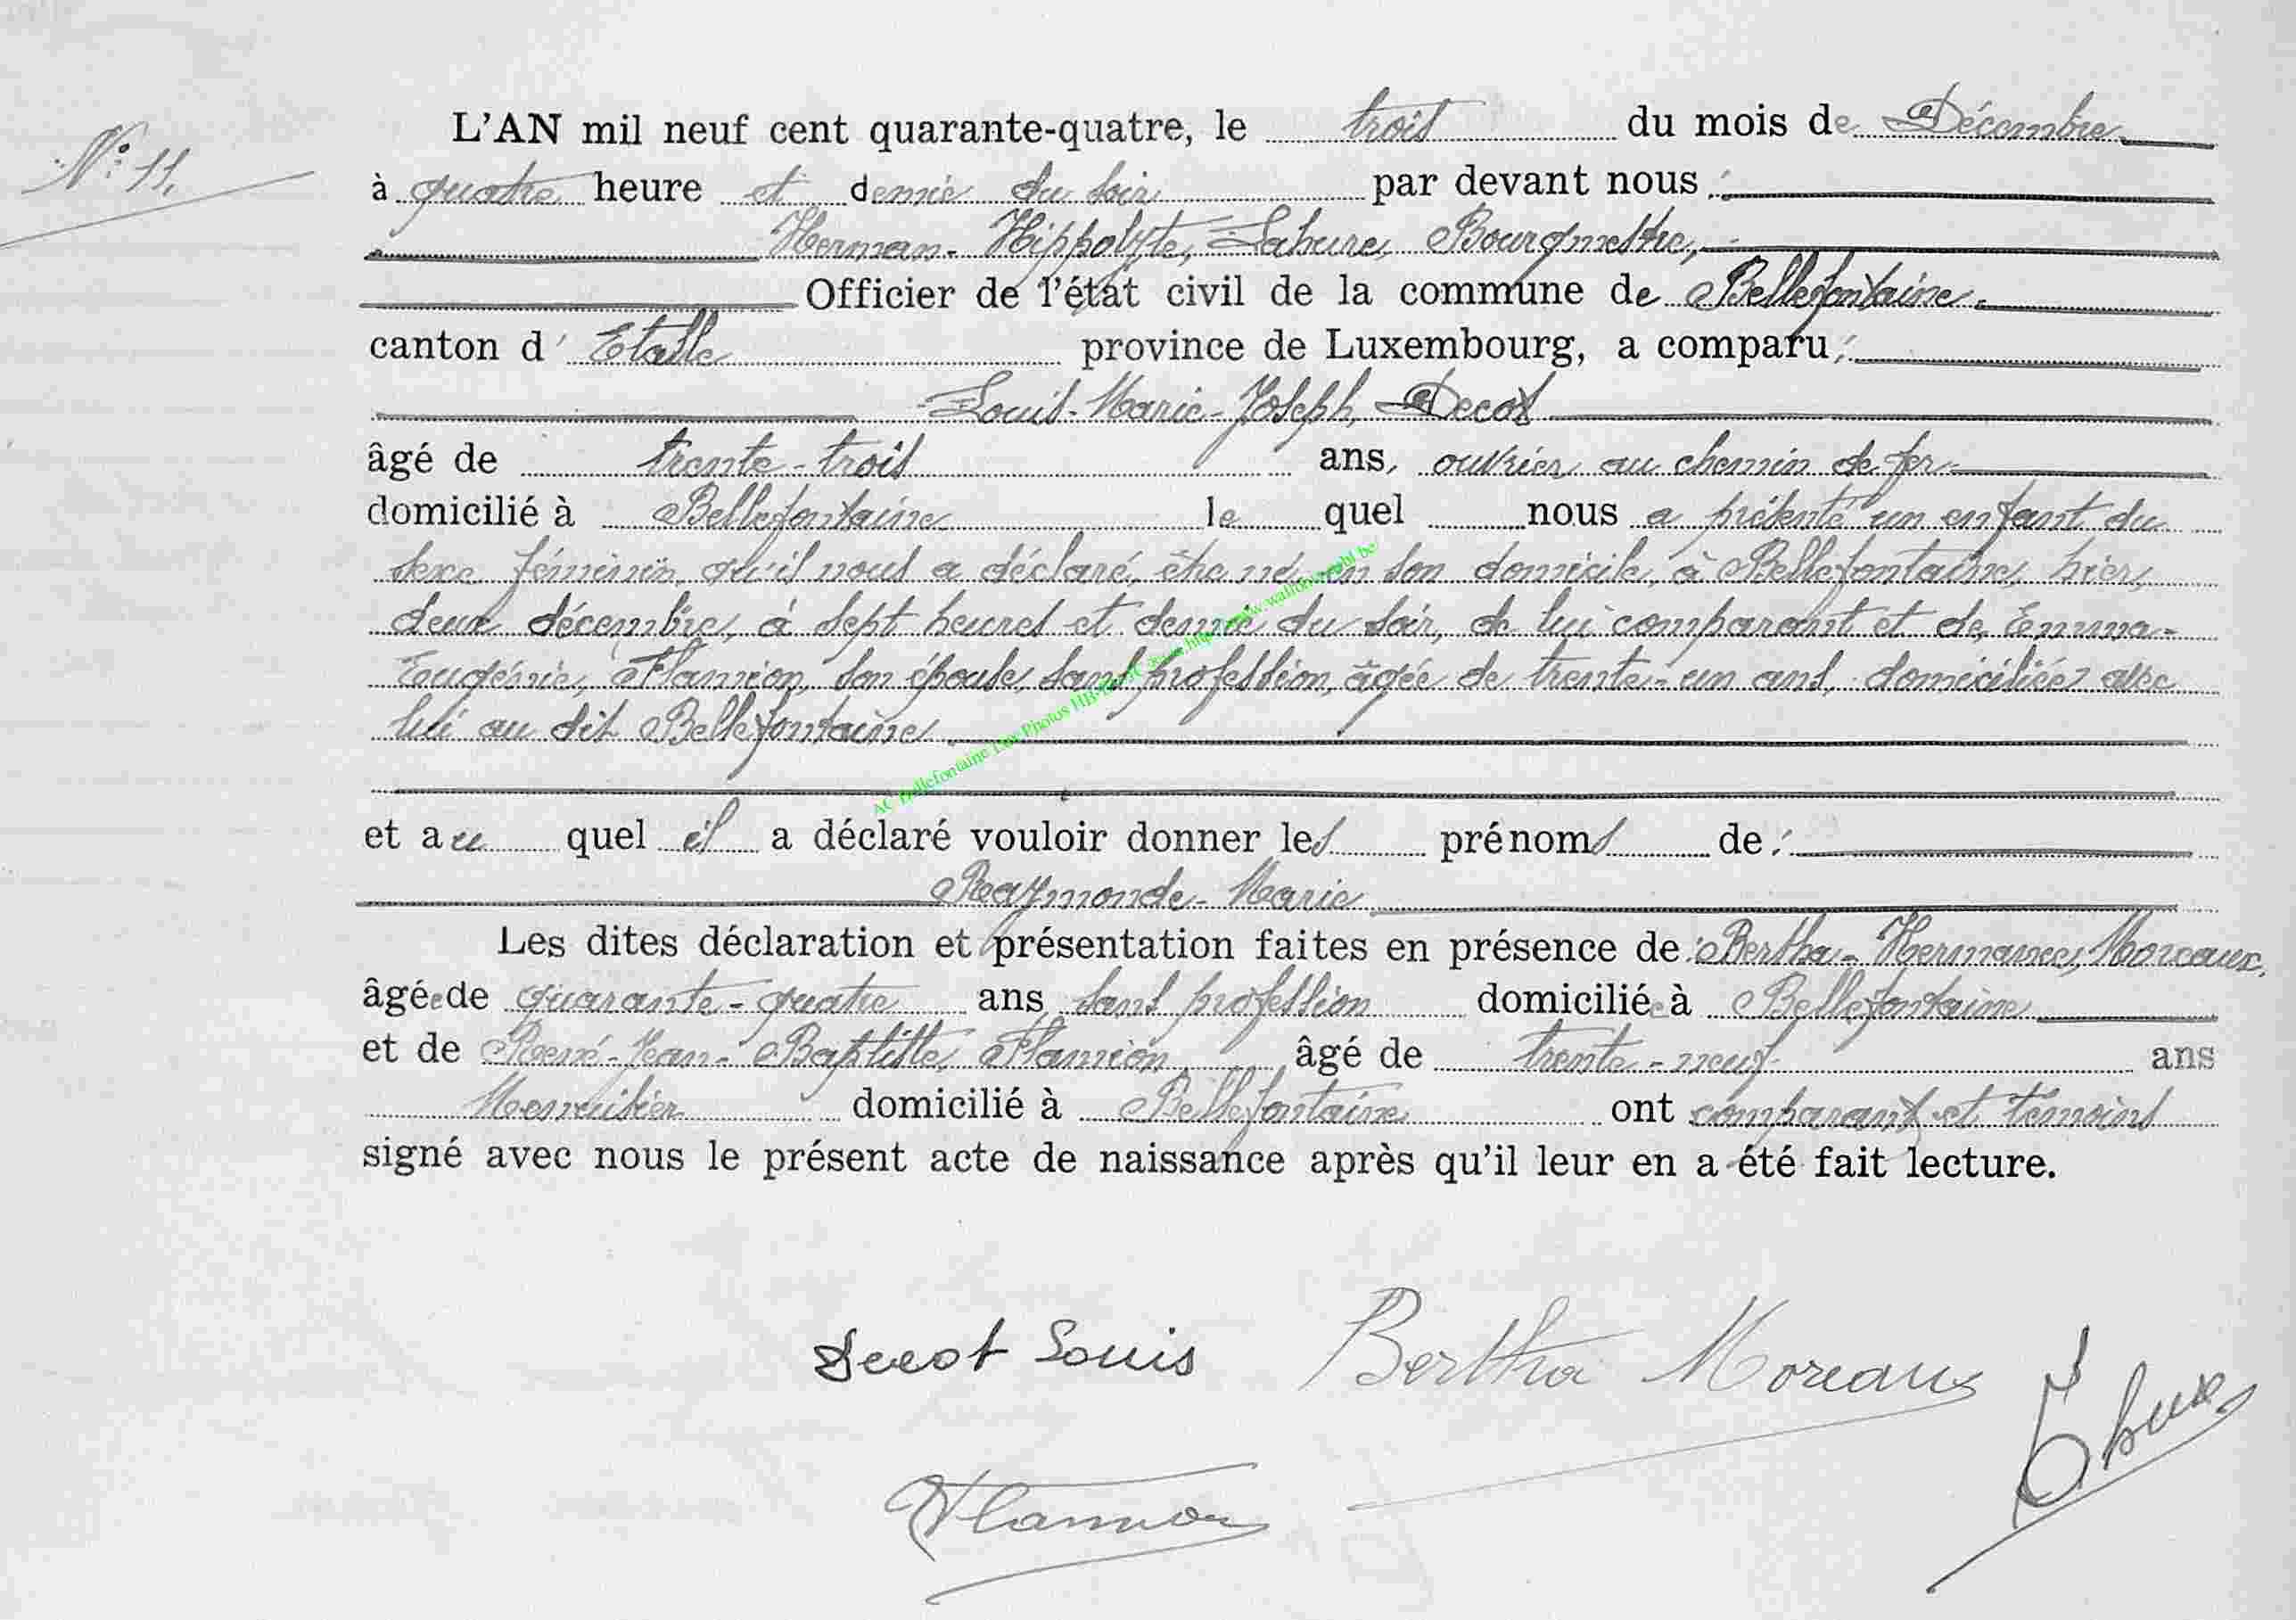 N° 11.
L'AN mil neuf cent quarante-quatre, le trois du mois de Décembre
à quatre heure et demie du soir par devant nous :
Herman-Hippolyte, Lahure, Bourgmestre,
Officier de l'état civil de la commune de Bellefontaine
canton d' Etalle province de Luxembourg, a comparu :
Louis-Marie-Joseph, Decot
âgé de trente-trois ans, ouvrier au chemin de fer
domicilié à Bellefontaine le quel nous a présenté un enfant du
sexe féminin, qu'il nous a déclaré, être né en son domicile, à Bellefontaine, hier,
deux décembre, à sept heures et demie du soir, de lui comparant et de, Emma-
Eugénie, Flamion, son épouse, sans profession, âgée de trente-un ans, domiciliée avec
lui au dit Bellefontaine
et au quel il a déclaré vouloir donner les prénoms de :
Raymonde-Marie
Les dites déclaration et présentation faites en présence de : Bertha-Hermance, Moreaux,
âgée de quarante-quatre ans sans profession domiciliée à Bellefontaine
et de René-Jean-Baptiste, Flamion âgé de trente-neuf ans
Menuisier domicilié à Bellefontaine ont comparant et témoins
signé avec nous le présent acte de naissance après qu'il leur en a été fait lecture.
Decot Louis Bertha Moreaux
Flamion
AC Bellefontaine Lux Photos